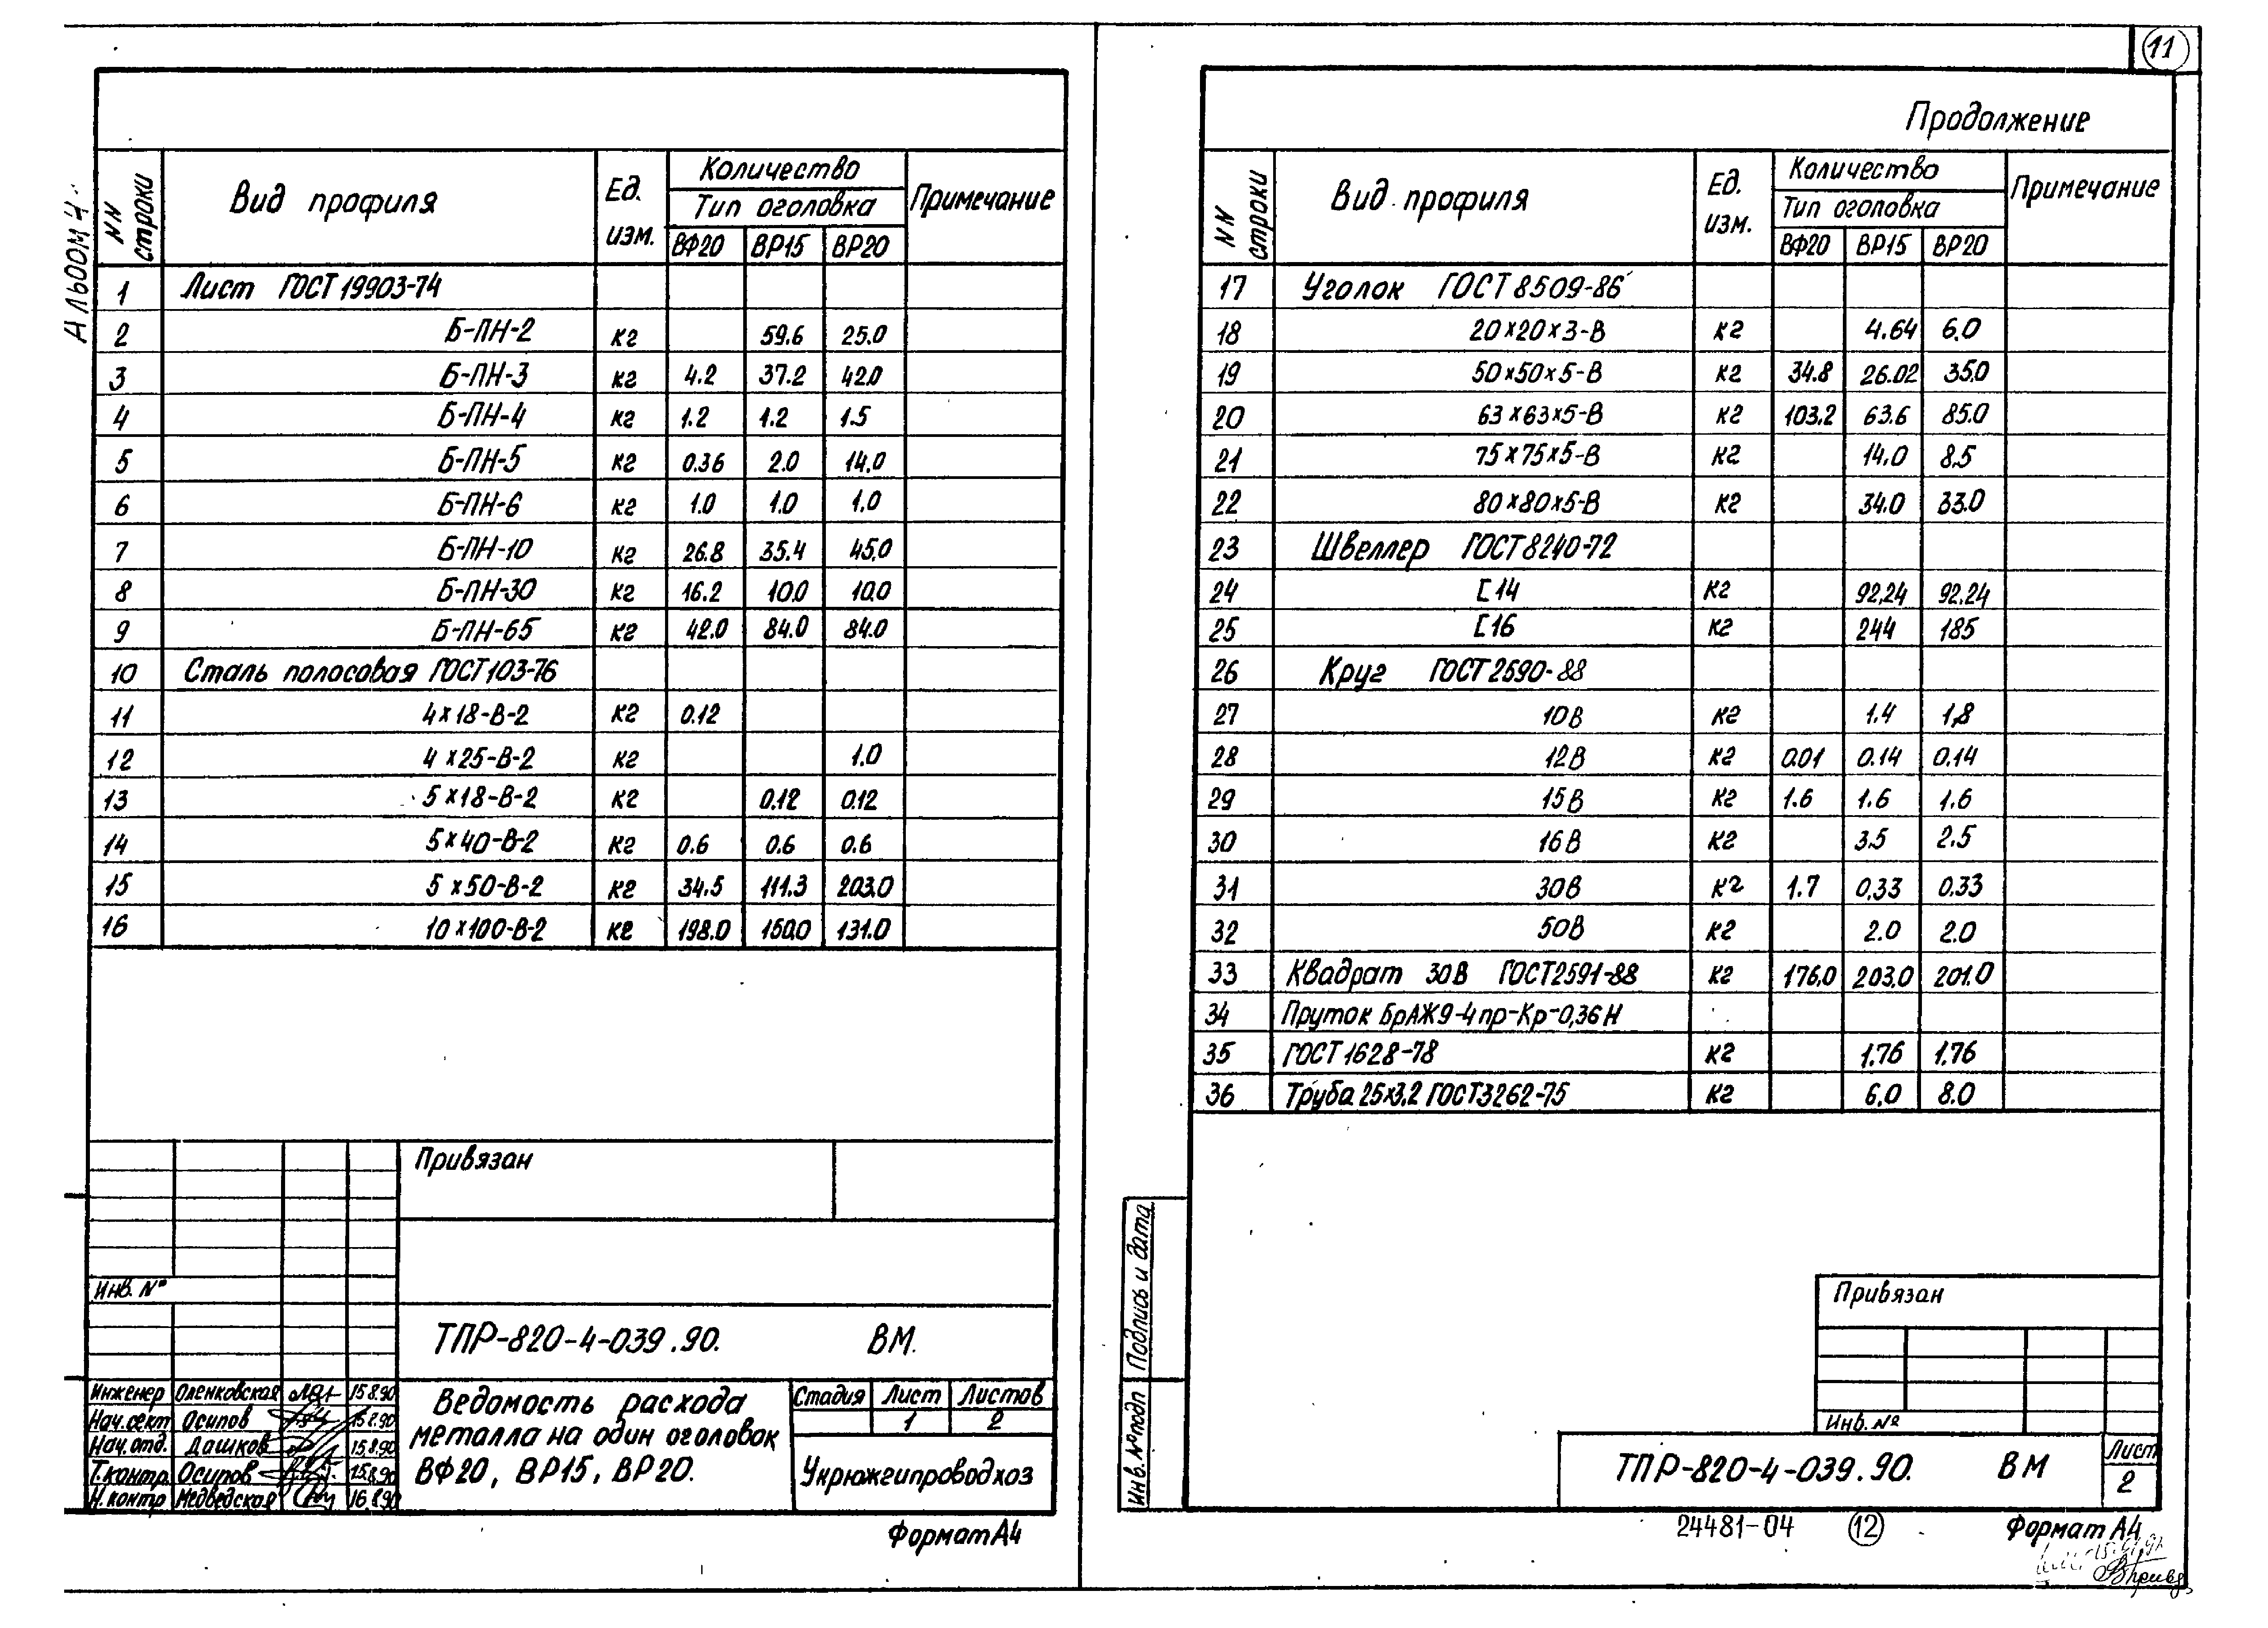 11
Альбом 4
NN строки | Вид профиля | Ед. изм. | Количество | Примечание
Тип оголовка
ВФ20 | ВР15 | ВР20
1 Лист ГОСТ 19903-74
2 Б-ПН-2 кг 59.6 25.0
3 Б-ПН-3 кг 4.2 37.2 42.0
4 Б-ПН-4 кг 1.2 1.2 1.5
5 Б-ПН-5 кг 0.36 2.0 14.0
6 Б-ПН-6 кг 1.0 1.0 1.0
7 Б-ПН-10 кг 26.8 35.4 45,0
8 Б-ПН-30 кг 16.2 10.0 10.0
9 Б-ПН-65 кг 42.0 84.0 84.0
10 Сталь полосовая ГОСТ 103-76
11 4×18-В-2 кг 0.12
12 4×25-В-2 кг 1.0
13 5×18-В-2 кг 0.12 0.12
14 5×40-В-2 кг 0.6 0.6 0.6
15 5×50-В-2 кг 34.5 111.3 203.0
16 10×100-В-2 кг 198.0 150.0 131.0
Привязан
Инв. №
ТПР-820-4-039.90. ВМ.
Инженер Оленковская 15.8.90
Нач.сект Осипов 15.8.90
Нач.отд. Дашков 15.8.90
Т.контр. Осипов 15.8.90
Н.контр Медведская 16.8.90
Ведомость расхода
металла на один оголовок
ВФ20, ВР15, ВР20.
Стадия Лист Листов
1 2
Укрюжгипроводхоз
Формат А4
Продолжение
NN строки | Вид профиля | Ед. изм. | Количество | Примечание
Тип оголовка
ВФ20 | ВР15 | ВР20
17 Уголок ГОСТ 8509-86
18 20×20×3-В кг 4.64 6.0
19 50×50×5-В кг 34.8 26.02 35.0
20 63×63×5-В кг 103.2 63.6 85.0
21 75×75×5-В кг 14.0 8.5
22 80×80×5-В кг 34.0 33.0
23 Швеллер ГОСТ 8240-72
24 [14 кг 92,24 92.24
25 [16 кг 244 185
26 Круг ГОСТ 2590-88
27 10В кг 1.4 1,8
28 12В кг 0.01 0.14 0.14
29 15В кг 1.6 1.6 1.6
30 16В кг 3.5 2.5
31 30В кг 1.7 0,33 0.33
32 50В кг 2.0 2.0
33 Квадрат 30В ГОСТ2591-88 кг 176.0 203.0 201.0
34 Пруток БрАЖ9-4пр-Кр-0,36Н
35 ГОСТ 1628-78 кг 1.76 1.76
36 Труба 25×3,2 ГОСТ3262-75 кг 6.0 8.0
Подпись и дата
Инв. №подл
Привязан
Инв. №
ТПР-820-4-039.90. ВМ
Лист
2
24481-04 12 Формат А4